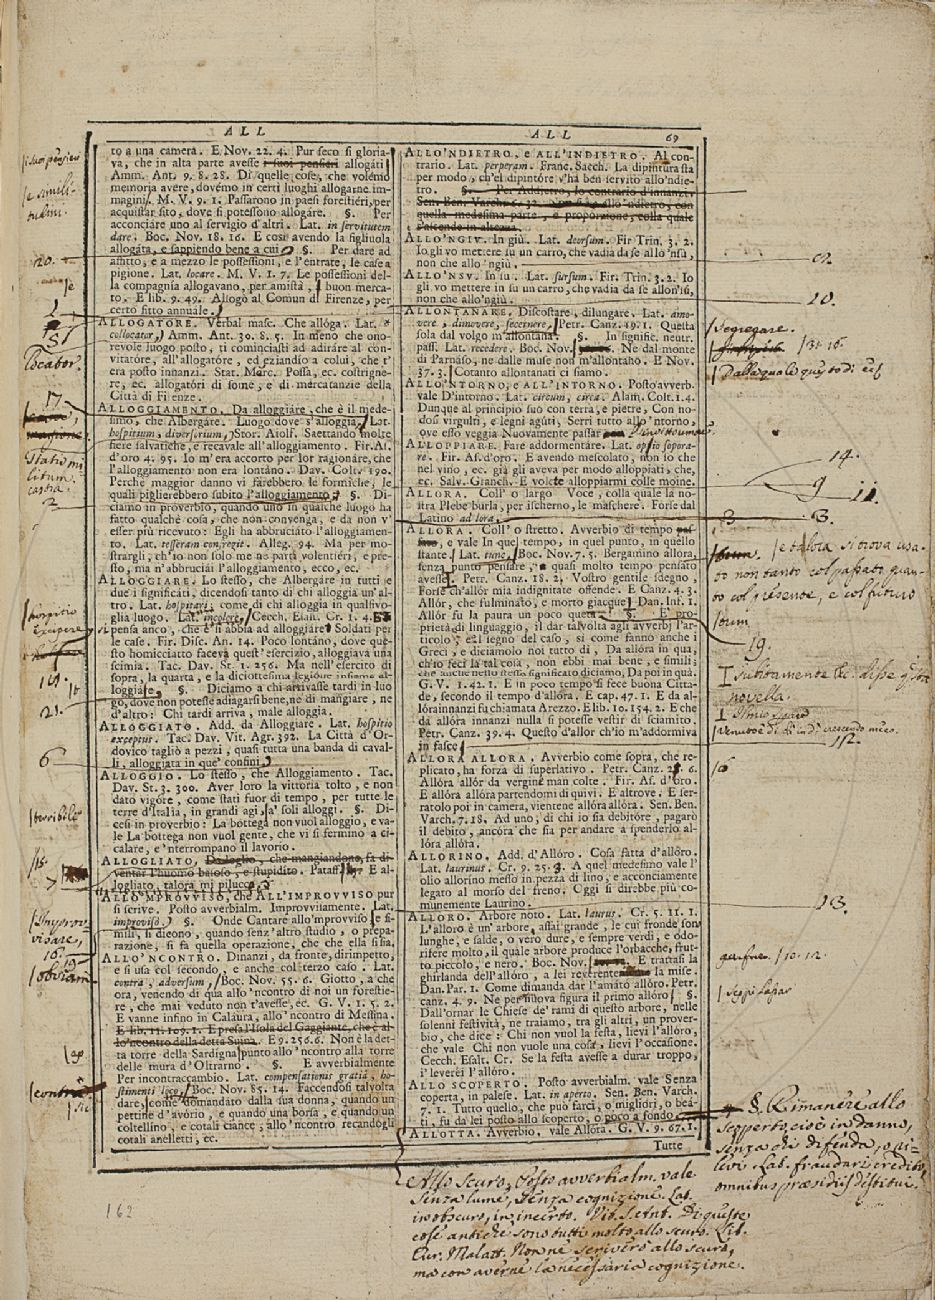 ALL
ALL
69
to a una camera. E Nov. 22. 4. Pur seco si gloria-
va, che in alta parte avesse i suoi pensieri allogati
Amm. Ant. 9. 8. 28. Di quelle cose, che volémo
memoria avere, dovémo in certi luoghi allogarne im-
magini. M. V. 9. 1. Passarono in paesi forestieri, per
acquistar sito, dove si potessono allogáre. §. Per
acconciare uno al servigio d'altri. Lat. in servitutem
dare. Boc. Nov. 18. 16. E così avendo la figliuola
allogata, e sappiendo bene a cui §. Per dare ad
affitto, e a mezzo le possessioni, e l'entrate, le case a
pigione. Lat. locare. M. V. 1. 7. Le possessioni del-
la compagnia allogavano, per amistà, buon merca-
to. E lib. 9. 49. Allogò al Comun di Firenze, per
certo fitto annuale.
ALLOGATORE. Verbal masc. Che allóga. Lat.
collocator, Amm. Ant. 30. 8. 5. In meno che ono-
revole luogo posto, ti cominciasti ad adiráre al con-
vitatóre, all'allogatóre, ed eziandío a colui, che t'
era posto innanzi. Stat. Merc. Possa, ec. costrigne-
re, ec. allogatóri di some, e di mercatanzíe della
Città di Firenze.
ALLOGGIAMENTO. Da alloggiáre, che è il mede-
simo, che Albergáre. Luogo dove s'alloggia, Lat.
hospitium, diversorium, Stor. Aiolf. Saettando molte
fiere salvatiche, e recavale all'alloggiamento. Fir. As.
d'oro 4. 95. Io m'era accorto per lor ragionáre, che
l'alloggiamento non era lontáno. Dav. Colt. 190.
Perchè maggior danno vi farebbero le formiche, le
quali piglierebbero subito l'alloggiamento §. Di-
ciamo in proverbio, quando uno in qualche luogo ha
fatto qualche cosa, che non convenga, e da non v'
esser più ricevuto: Egli ha abbruciáto l'alloggiamen-
to. Lat. tesseram confregit. Alleg. 94. Ma per mo-
strargli, ch'io non solo me ne partii volentiéri, e pre-
sto, ma n'abbruciái l'alloggiamento, ecco, ec.
ALLOGGIARE. Lo stesso, che Albergáre in tutti e
due i significati, dicendosi tanto di chi alloggia un'al-
tro. Lat. hospitari; come di chi alloggia in qualsivo-
glia luogo. Lat. incolere, Cecch. Esalt. Cr. 1. 4.
si pensa anco, che s'si abbia ad alloggiáre Soldati per
le case. Fir. Disc. An. 14. Poco lontáno, dove que-
sto homicciatto faceva quest'esercizio, alloggiava una
scimia. Tac. Dav. St. 1. 256. Ma nell'esercito di
sopra, la quarta, e la diciottesima legióne insieme al-
loggiáte, §. Diciamo a chi arrivasse tardi in luo-
go, dove non potesse adagiarsi bene, ne di mangiare, ne
d'altro: Chi tardi arriva, male alloggia.
ALLOGGIATO. Add. da Alloggiare. Lat. hospitio
exceptus. Tac. Dav. Vit. Agr. 392. La Città d'Or-
dovico tagliò a pezzi, quasi tutta una banda di caval-
li, alloggiata in que' confini,
ALLOGGIO. Lo stesso, che Alloggiamento. Tac.
Dav. St. 3. 300. Aver loro la vittoria tolto, e non
dato vigóre, come stati fuor di tempo, per tutte le
terre d'Italia, in grandi agi, a' soli alloggi. §. Di-
cesi in proverbio: La bottega non vuol alloggio, e va-
le La bottega non vuol gente, che vi si fermino a ci-
calare, e 'nterrompano il lavorio.
ALLOGLIATO, Da loglio, che mangiandone, fa di-
ventar l'huomo baioso, e stupidito. Pataff. E al-
logliato, talora mi pilucca
ALLO'MPROVVISO, che ALL'IMPROVVISO pur
si scrive. Posto avverbialm. Improvvisamente. Lat.
improviso, §. Onde Cantare allo'mprovviso, e si-
mili, si dicono, quando senz'altro studio, o prepa-
razione, si fa quella operazione, che che ella si sia,
ALLO'NCONTRO. Dinanzi, da fronte, dirimpetto,
e si usa col secondo, e anche col terzo caso. Lat.
contra, adversum, Boc. Nov. 55. 6. Giotto, a che
ora, venendo di qua allo 'ncontro di noi un forestie-
re, che mai veduto non t'avesse, ec. G. V. 1. 5. 2.
E vanne infino in Calaura, allo 'ncontro di Messina.
E lib. 11. 109. 1. E presa l'Isola del Gaggiante, che è al-
lo'ncontro della detta Suina. E 9. 256. 6. Non è la det-
ta torre della Sardigna punto allo 'ncontro alla torre
delle mura d'Oltrarno. §. E avverbialmente
Per incontraccambio. Lat. compensationis gratiâ, ho-
stimenti loco, Boc. Nov. 85. 14. Faccendosi talvolta
dare, come domandato dalla sua donna, quando un
pettine d'avório, e quando una borsa, e quando un
coltellino, e cotali ciance; allo 'ncontro recandogli
cotali anelletti, ec.
ALLO'NDIETRO, e ALL'INDIETRO. Al con-
trario. Lat. perperam. Franc. Sacch. La dipintura sta
per modo, ch'el dipintóre v'ha ben servito allo'ndie-
tro. §. Per Addietro, lo contrario d'innanzi,
Sen. Ben. Varch. 6. 32. allo 'ndietro, con
quella medesima parte, e proporzione, colla quale
s'ascende in alteaza.
ALLO'NGIV. In giù. Lat. deorsum. Fir. Trin. 3. 2.
Io gli vo mettere in su un carro, che vadia da se allo 'nsu,
non che allo 'ngiù.
ALLO'NSV. In su. Lat. sursum. Fir. Trin. 3. 2. Io
gli vo mettere in su un carro, che vadia da se allon'sù,
non che allo'ngiù.
ALLONTANARE. Discostare, dilungare. Lat. amo-
vere, dimovere, secernere, Petr. Canz. 19. 1. Questa
sola dal volgo m'allontana. §. In signific. neutr.
pass. Lat. recedere. Boc. Nov. Ne dal monte
di Parnáso, ne dalle muse non m'allontano. E Nov.
37. 3. Cotanto allontanati ci siamo.
ALLO'NTORNO, e ALL'INTORNO. Posto avverb.
vale D'intorno. Lat. circum, circa. Alam. Colt. 1. 4.
Dunque al principio suo con terra, e pietre, Con no-
dosi virgulti, e legni agúti, Serri tutto allo 'ntorno,
ove esso veggia Nuovamente passar
ALLOPPIARE. Fare addormentáre. Lat. opio sopora-
re. Fir. As. d'oro. E avendo mescolato, non so che
nel vino, ec. già gli aveva per modo alloppiati, che,
ec. Salv. Granch. E volete alloppiarmi colle moine.
ALLORA. Coll' o largo Voce, colla quale la no-
stra Plebe burla, per ischerno, le maschere. Forse dal
Latino ad lora.
ALLORA. Coll' o stretto. Avverbio di tempo pas-
sato, e vale In quel tempo, in quel punto, in quello
stante. Lat. tunc, Boc. Nov. 7. 5. Bergamino allora,
senza punto pensare, quasi molto tempo pensato
avesse. Petr. Canz. 18. 2. Vostro gentile sdegno,
Forse ch'allór mia indignitate offende. E Canz. 4. 3.
Allór, che fulminato, e morto giacque. Dan. Inf. 1.
Allór fu la paura un poco queta §. E' pro-
prietà di linguaggio, il dar talvolta agli avverbj l'ar-
ticolo, e il segno del caso, sì come fanno anche i
Greci, e diciamolo noi tutto dì, Da allóra in qua,
ch'io feci la tal cosa, non ebbi mai bene, e simili;
che anche nello stesso significato diciamo, Da poi in quà.
G. V. 1. 42. 1. E in poco tempo si fece buona Citta-
de, secondo il tempo d'allóra. E cap. 47. 1. E da al-
lórainnanzi fu chiamata Arezzo. E lib. 10. 154. 2. E che
da allóra innanzi nulla si potesse vestir di sciamito.
Petr. Canz. 39. 4. Questo d'allor ch'io m'addormiva
in fasce
ALLORA ALLORA. Avverbio come sopra, che re-
plicato, ha forza di superlativo. Petr. Canz. 28. 6.
Allóra allór da vergine man colte. Fir. As. d'oro.
E allóra allóra partendomi di quivi. E altrove. E ser-
ratolo poi in camera, vientene allóra allóra. Sen. Ben.
Varch. 7. 18. Ad uno, di chi io sia debitóre, pagarò
il debito, ancóra che sia per andare a spenderlo al-
lóra allóra.
ALLORINO. Add. d'Allóro. Cosa fatta d'allóro.
Lat. laurinus. Cr. 9. 25. 3. A quel medesimo vale l'
olio allorino messo in pezza di lino, e acconciamente
legato al morso del freno. Oggi si direbbe più co-
munemente Laurino.
ALLORO. Arbore noto. Lat. laurus. Cr. 5. 11. 1.
L'alloro è un'arbore, assai grande, le cui fronde son
lunghe, e salde, o vero dure, e sempre verdi, e odo-
rifere molto, il quale arbore produce l'orbacche, frut-
to piccolo, e nero. Boc. Nov. E trattasi la
ghirlanda dell'allóro, a lei reverente la mise.
Dan. Par. 1. Come dimanda dar l'amato allóro. Petr.
canz. 4. 9. Ne per nuova figura il primo allóro §.
Dall'ornar le Chiese de' rami di questo arbore, nelle
solenni festività, ne traiamo, tra gli altri, un prover-
bio, che dice: Chi non vuol la festa, lievi l'allóro,
che vale Chi non vuole una cosa, lievi l'occasione.
Cecch. Esalt. Cr. Se la festa avesse a durar troppo,
i' leverei l'alloro.
ALLO SCOPERTO. Posto avverbialm. vale Senza
coperta, in palese. Lat. in aperto. Sen. Ben. Varch.
7. 1. Tutto quello, che può farci, o miglióri, o beá-
ti, fu da lei posto allo scoperto, o poco a fondo.
ALLOTTA. Avverbio, vale Allóra. G. V. 9. 67. 1.
Tutte
suoi pensieri
e simili-
tudini.
20.
1
locator.
17
statio mi
litum.
castra.
2
hospitio
excipere
19.
21.
6
terribile
15.
Improv-
visare,
16.
19
obviam
contrà
9.
10.
segregare.
31. 16.
Dalla quale questo dì
14.
9
11.
3
3.
e talora si trova usa-
to non tanto col passato quan-
to col presente, e col futuro
tum
19.
subitamente &c. disse questa
novella.
venuto è di dì in dì crescendo meco.
12.
16
13.
10. 12.
§. Rimanére allo
scoperto, cioè in danno,
senza chi difenda, o al-
levi. Lat. fraudari credito,
omnibus præsidijs destitui.
Allo scuro, Posto avverbialm. vale
senza lume, senza cognizione. Lat.
in obscuro, in incerto. Vit. S. Ant. Di queste
cose antiche sono tutti molto allo scuro. Lib.
Cur. Malatt. Non ne scriverò allo scuro,
ma con averne la necessaria cognizione.
162